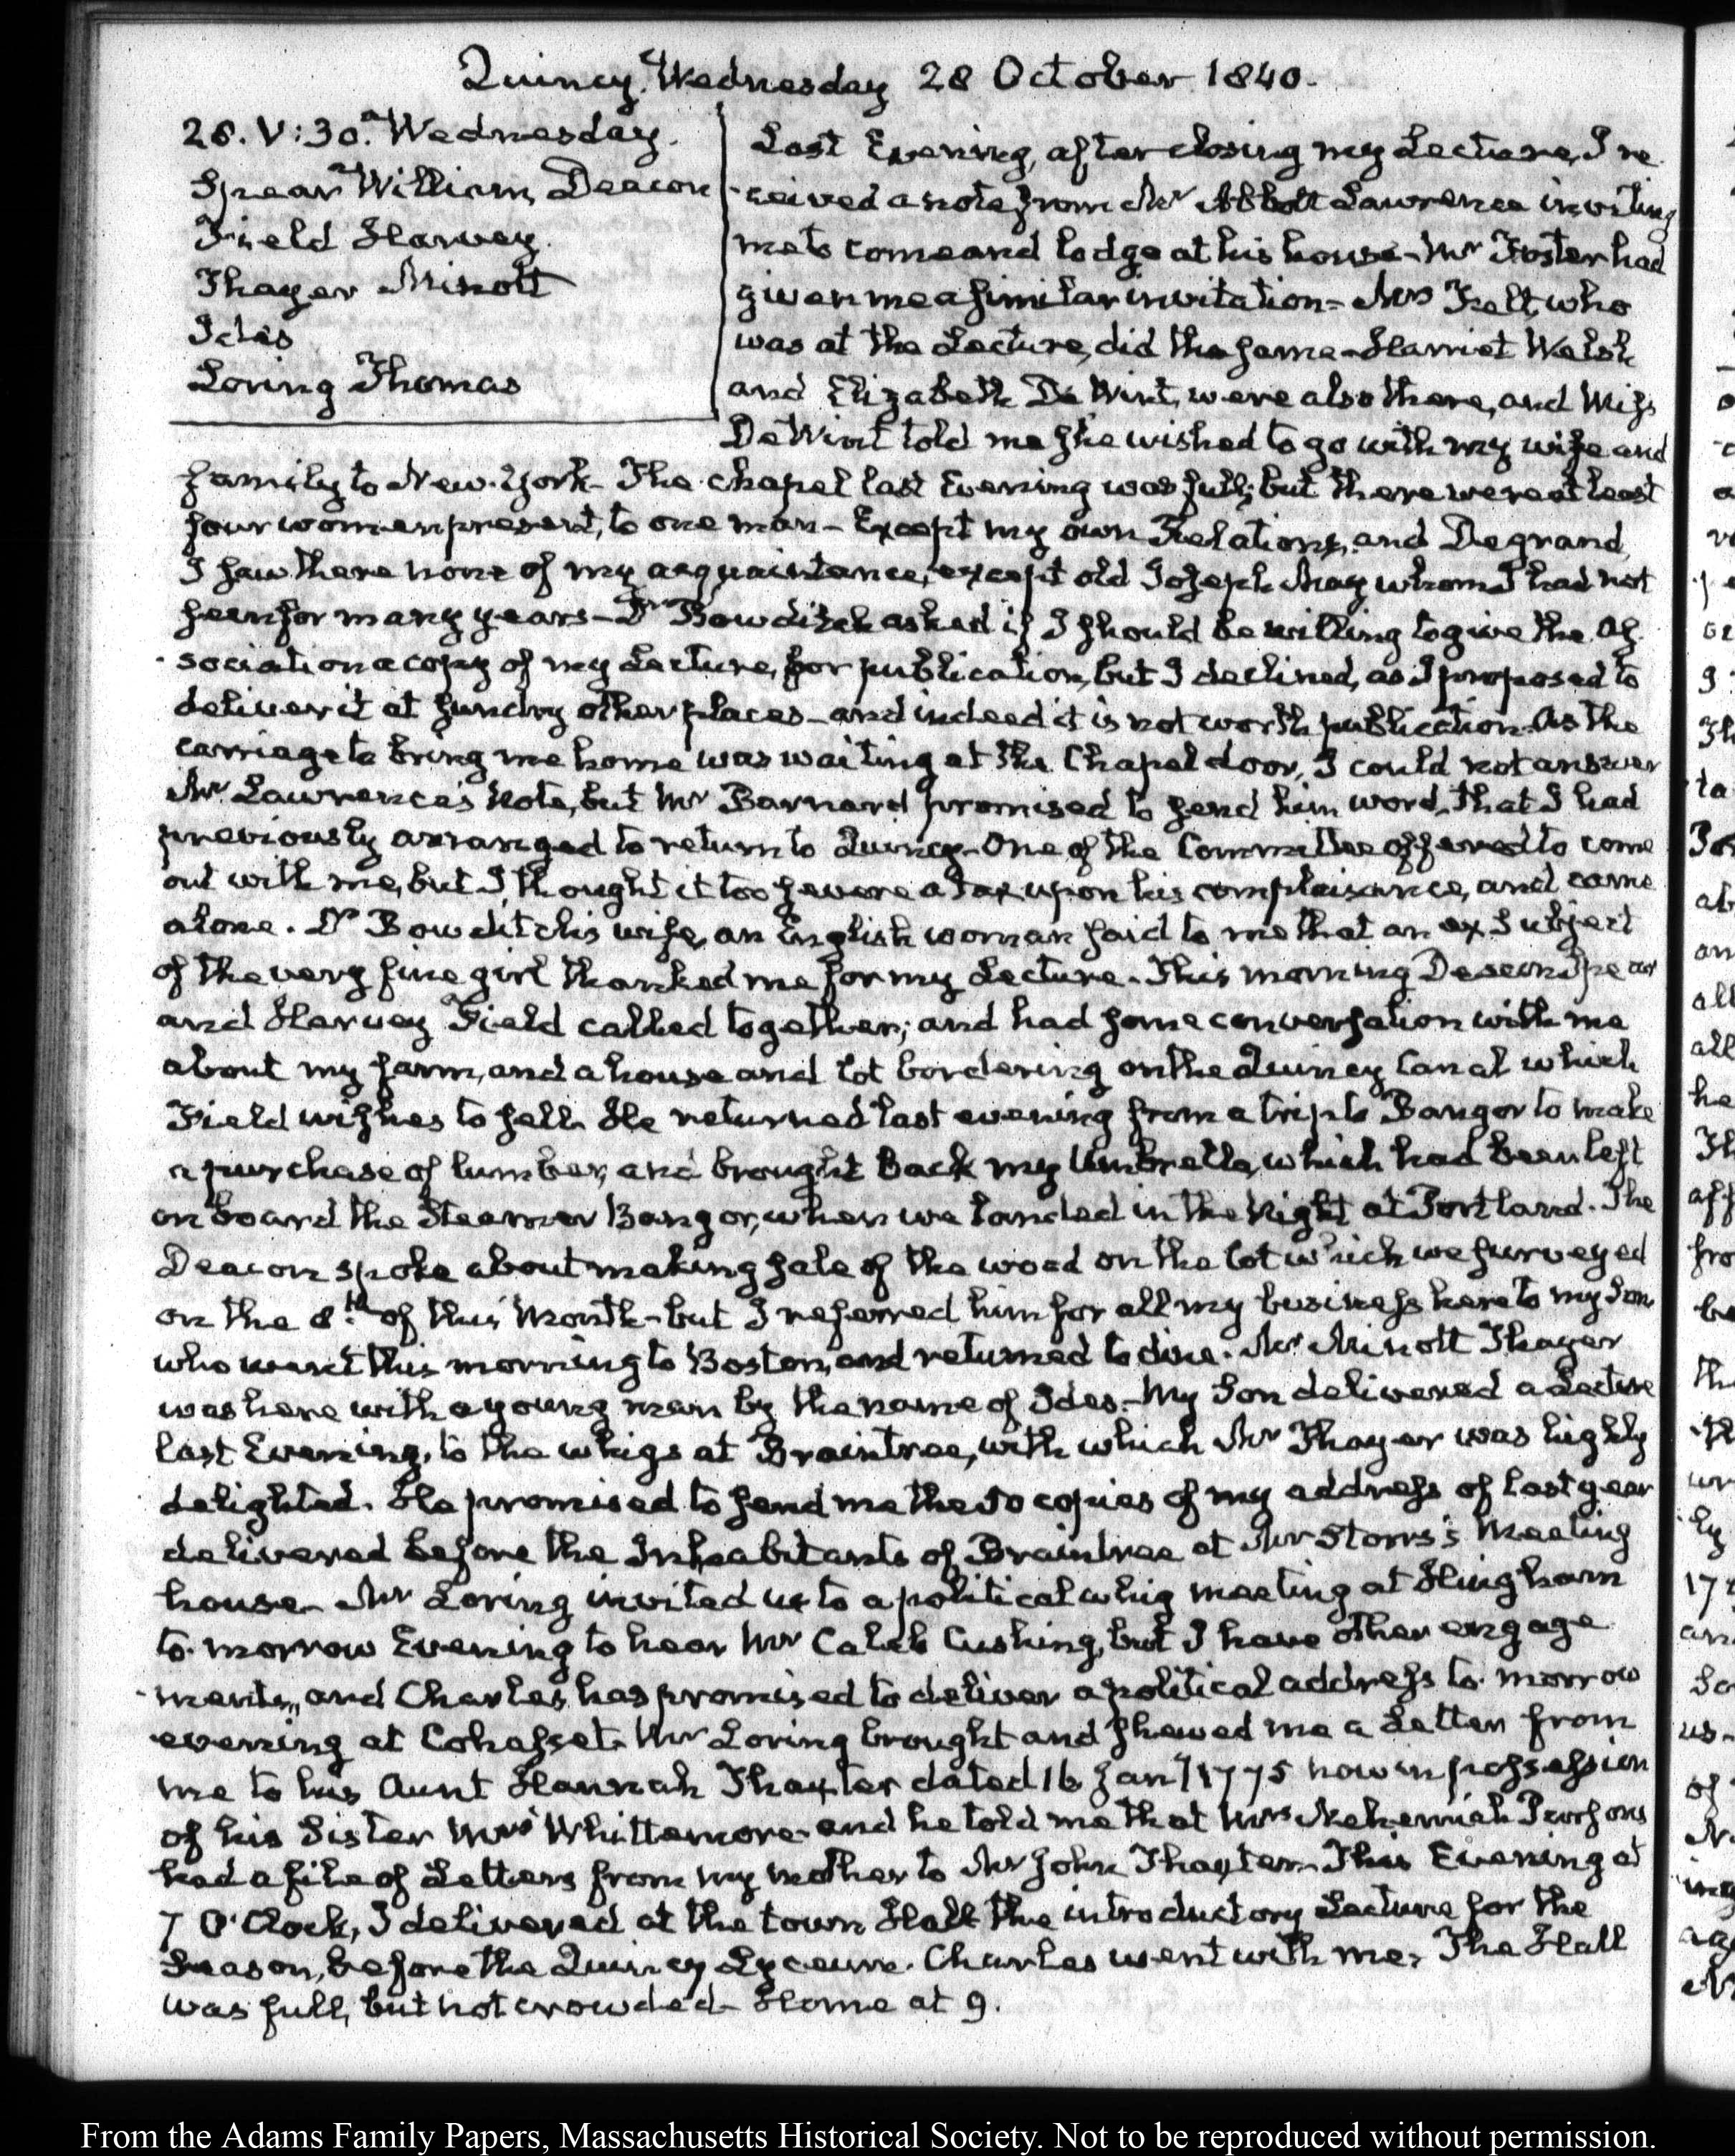 Quincy. Wednesday 28 October 1840.
28. V:30. Wednesday.
Spear William, Deacon
Field Harvey.
Thayer Minott
Ides
Loring Thomas
Last Evening, after closing my Lecture, I re
-ceived a note from Mr Abbott Lawrence inviting
me to come and lodge at his house - Mr Foster had
given me a similar invitation - Mrs Felt, who
was at the Lecture, did the same - Harriet Welsh
and Elizabeth De Wint, were also there, and Miss
De Wint told me she wished to go with my wife and
family to New-York - The chapel last Evening was full; but there were at least
four women present, to one man - Except my own Relations, and Degrand,
I saw there none of my acquaintance, except old Joseph May whom I had not
seen for many years - Dr Bowditch asked if I should be willing to give the As
-sociation a copy of my Lecture, for publication, but I declined, as I proposed to
deliver it at sundry other places - and indeed it is not worth publication. As the
carriage to bring me home was waiting at the Chapel door, I could not answer
Mr Lawrence's Note, but Mr Barnard promised to send him word, that I had
previously arranged to return to Quincy - One of the Committee offered to come
out with me, but I thought it too severe a tax upon his complaisance, and came
alone. Dr Bowditch's wife, an English woman said to me that an ex Subject
of the very fine girl thanked me for my Lecture. This morning Deacon Spear
and Harvey Field called together; and had some conversation with me
about my farm, and a house and lot bordering on the Quincy Canal which
Field wishes to sell. He returned last evening from a trip to Bangor to make
a purchase of lumber, and brought Back my Umbrella, which had been left
on board the Steamer Bangor, when we landed in the Night at Portland. The
Deacon spoke about making sale of the wood on the lot which we surveyed
on the 8th of this Month - but I referred him for all my business here to my Son
who went this morning to Boston, and returned to dine. Mr Minott Thayer
was here with a young man by the name of Ides - My Son delivered a Lecture
last Evening, to the whigs at Braintree, with which Mr Thayer was highly
delighted. He promised to send me the 50 copies of my address of last year
delivered before the Inhabitants of Braintree at Mr Storrs's Meeting
house - Mr Loring invited us to a political whig meeting at Hingham
to-morrow Evening to hear Mr Caleb Cushing, but I have other engage
-ments, and Charles has promised to deliver a political address to-morrow
evening at Cohasset. Mr Loring brought and shewed me a Letter from
me to his Aunt Hannah Thaxter dated 16 Jany 1775 now in possession
of his Sister Mrs Whittemore - and he told me that Mrs Nehemiah Parsons
had a file of Letters from my mother to Mr John Thaxter. This Evening at
7 O'Clock, I delivered at the town Hall the introductory Lecture for the
Season, before the Quincy Lyceum. Charles went with me. The Hall
was full, but not crowded - Home at 9.
From the Adams Family Papers, Massachusetts Historical Society. Not to be reproduced without permission.